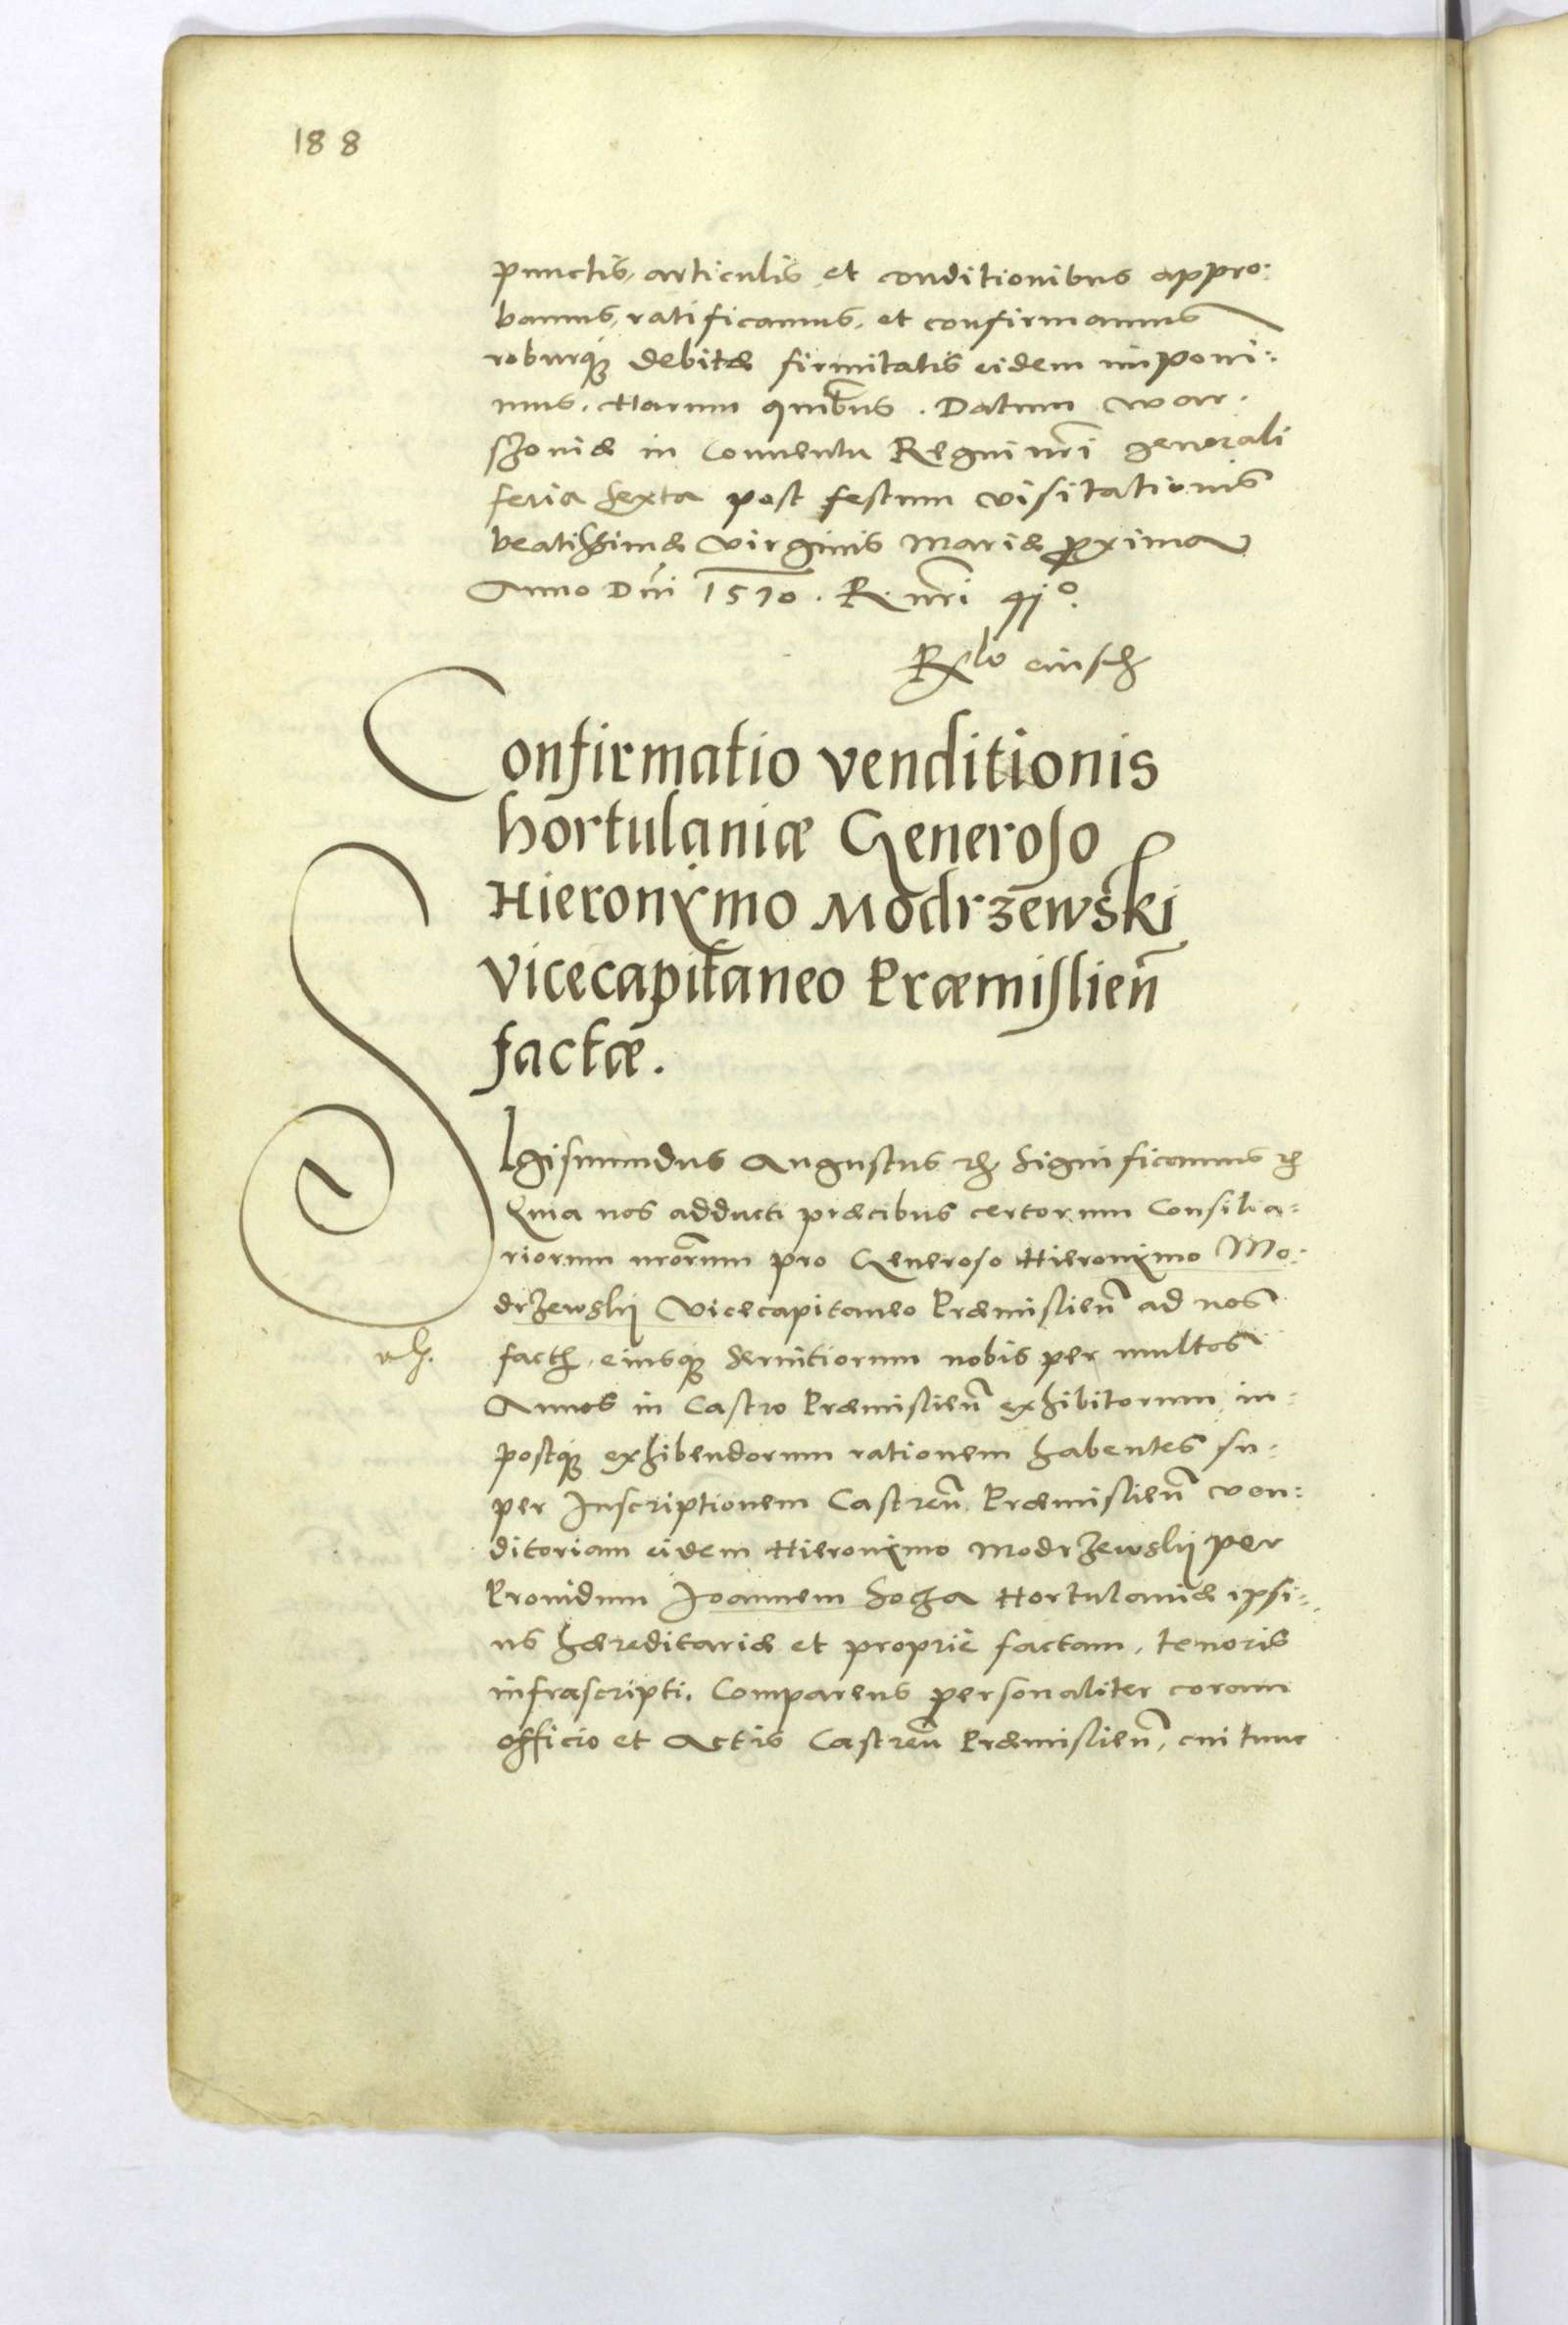 188
punctis, articulis et conditionibus appro:
bamus, ratificamus, et confirmamus
roburq̃ debitæ firmitatis eidem imponi:
mus. Harum quibus. Datum War.
szoviæ in Conventu Regni nr̃i generali
feria sexta post festum visitationis
beatissimæ Virginis Mariæ proxima
Anno Dñi 1570. R. nr̃i 41º.
R[elati]o eiusd[em]
Confirmatio venditionis
hortulaniæ Generoso
Hieronymo Modrzewski
vicecapitaneo Præmislieñ
factæ.
SIgismundus Augustus etc. Significamus etc.
Quia nos adducti præcibus certorum Consilia:
riorum nr̃orum pro Generoso Hieronymo Mo:
drzewskij Vicecapitaneo Præmislieñ ad nos
fact. eiusq̃ servitiorum nobis per multos
Annos in Castro Præmislieñ exhibitorum, in:
postq̃ exhibendorum rationem habentes su:
per Inscriptionem Castreñ Præmislieñ ven:
ditoriam eidem Hieronymo Modrzewskij per
Providum Joannem Socha Hortulaniæ ipsi:
us hæreditariæ et propriè factam, tenoris
infrascripti. Comparens personaliter coram
officio et Actis Castreñ Præmislieñ, cui tunc